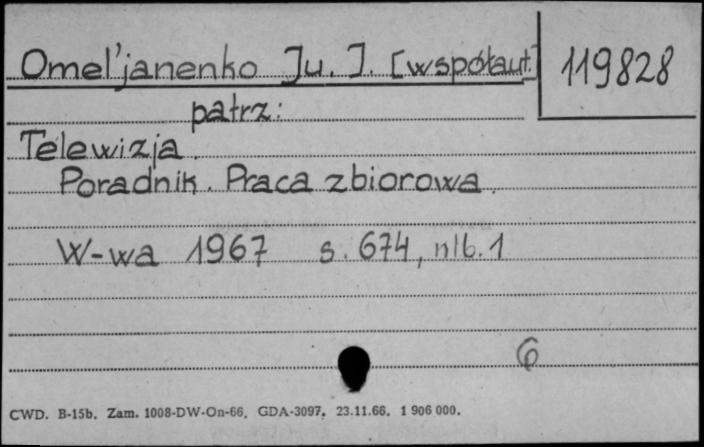 Omel'janenko Ju. I. [współaut.]
119828
patrz:
Telewizja.
Poradnik. Praca zbiorowa.
W-wa 1967 s. 674, nlb. 1
6
CWD. B-15b. Zam. 1008-DW-On-66. GDA-3097. 23.11.66. 1 906 000.